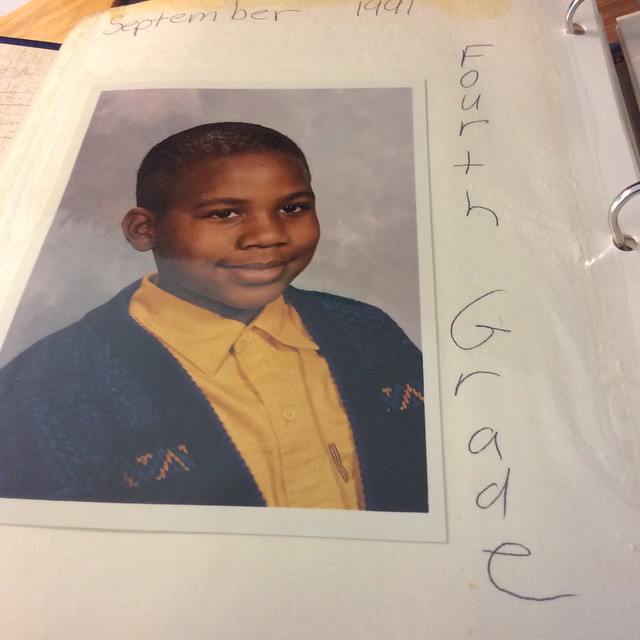 September 1991
Fourth Grade